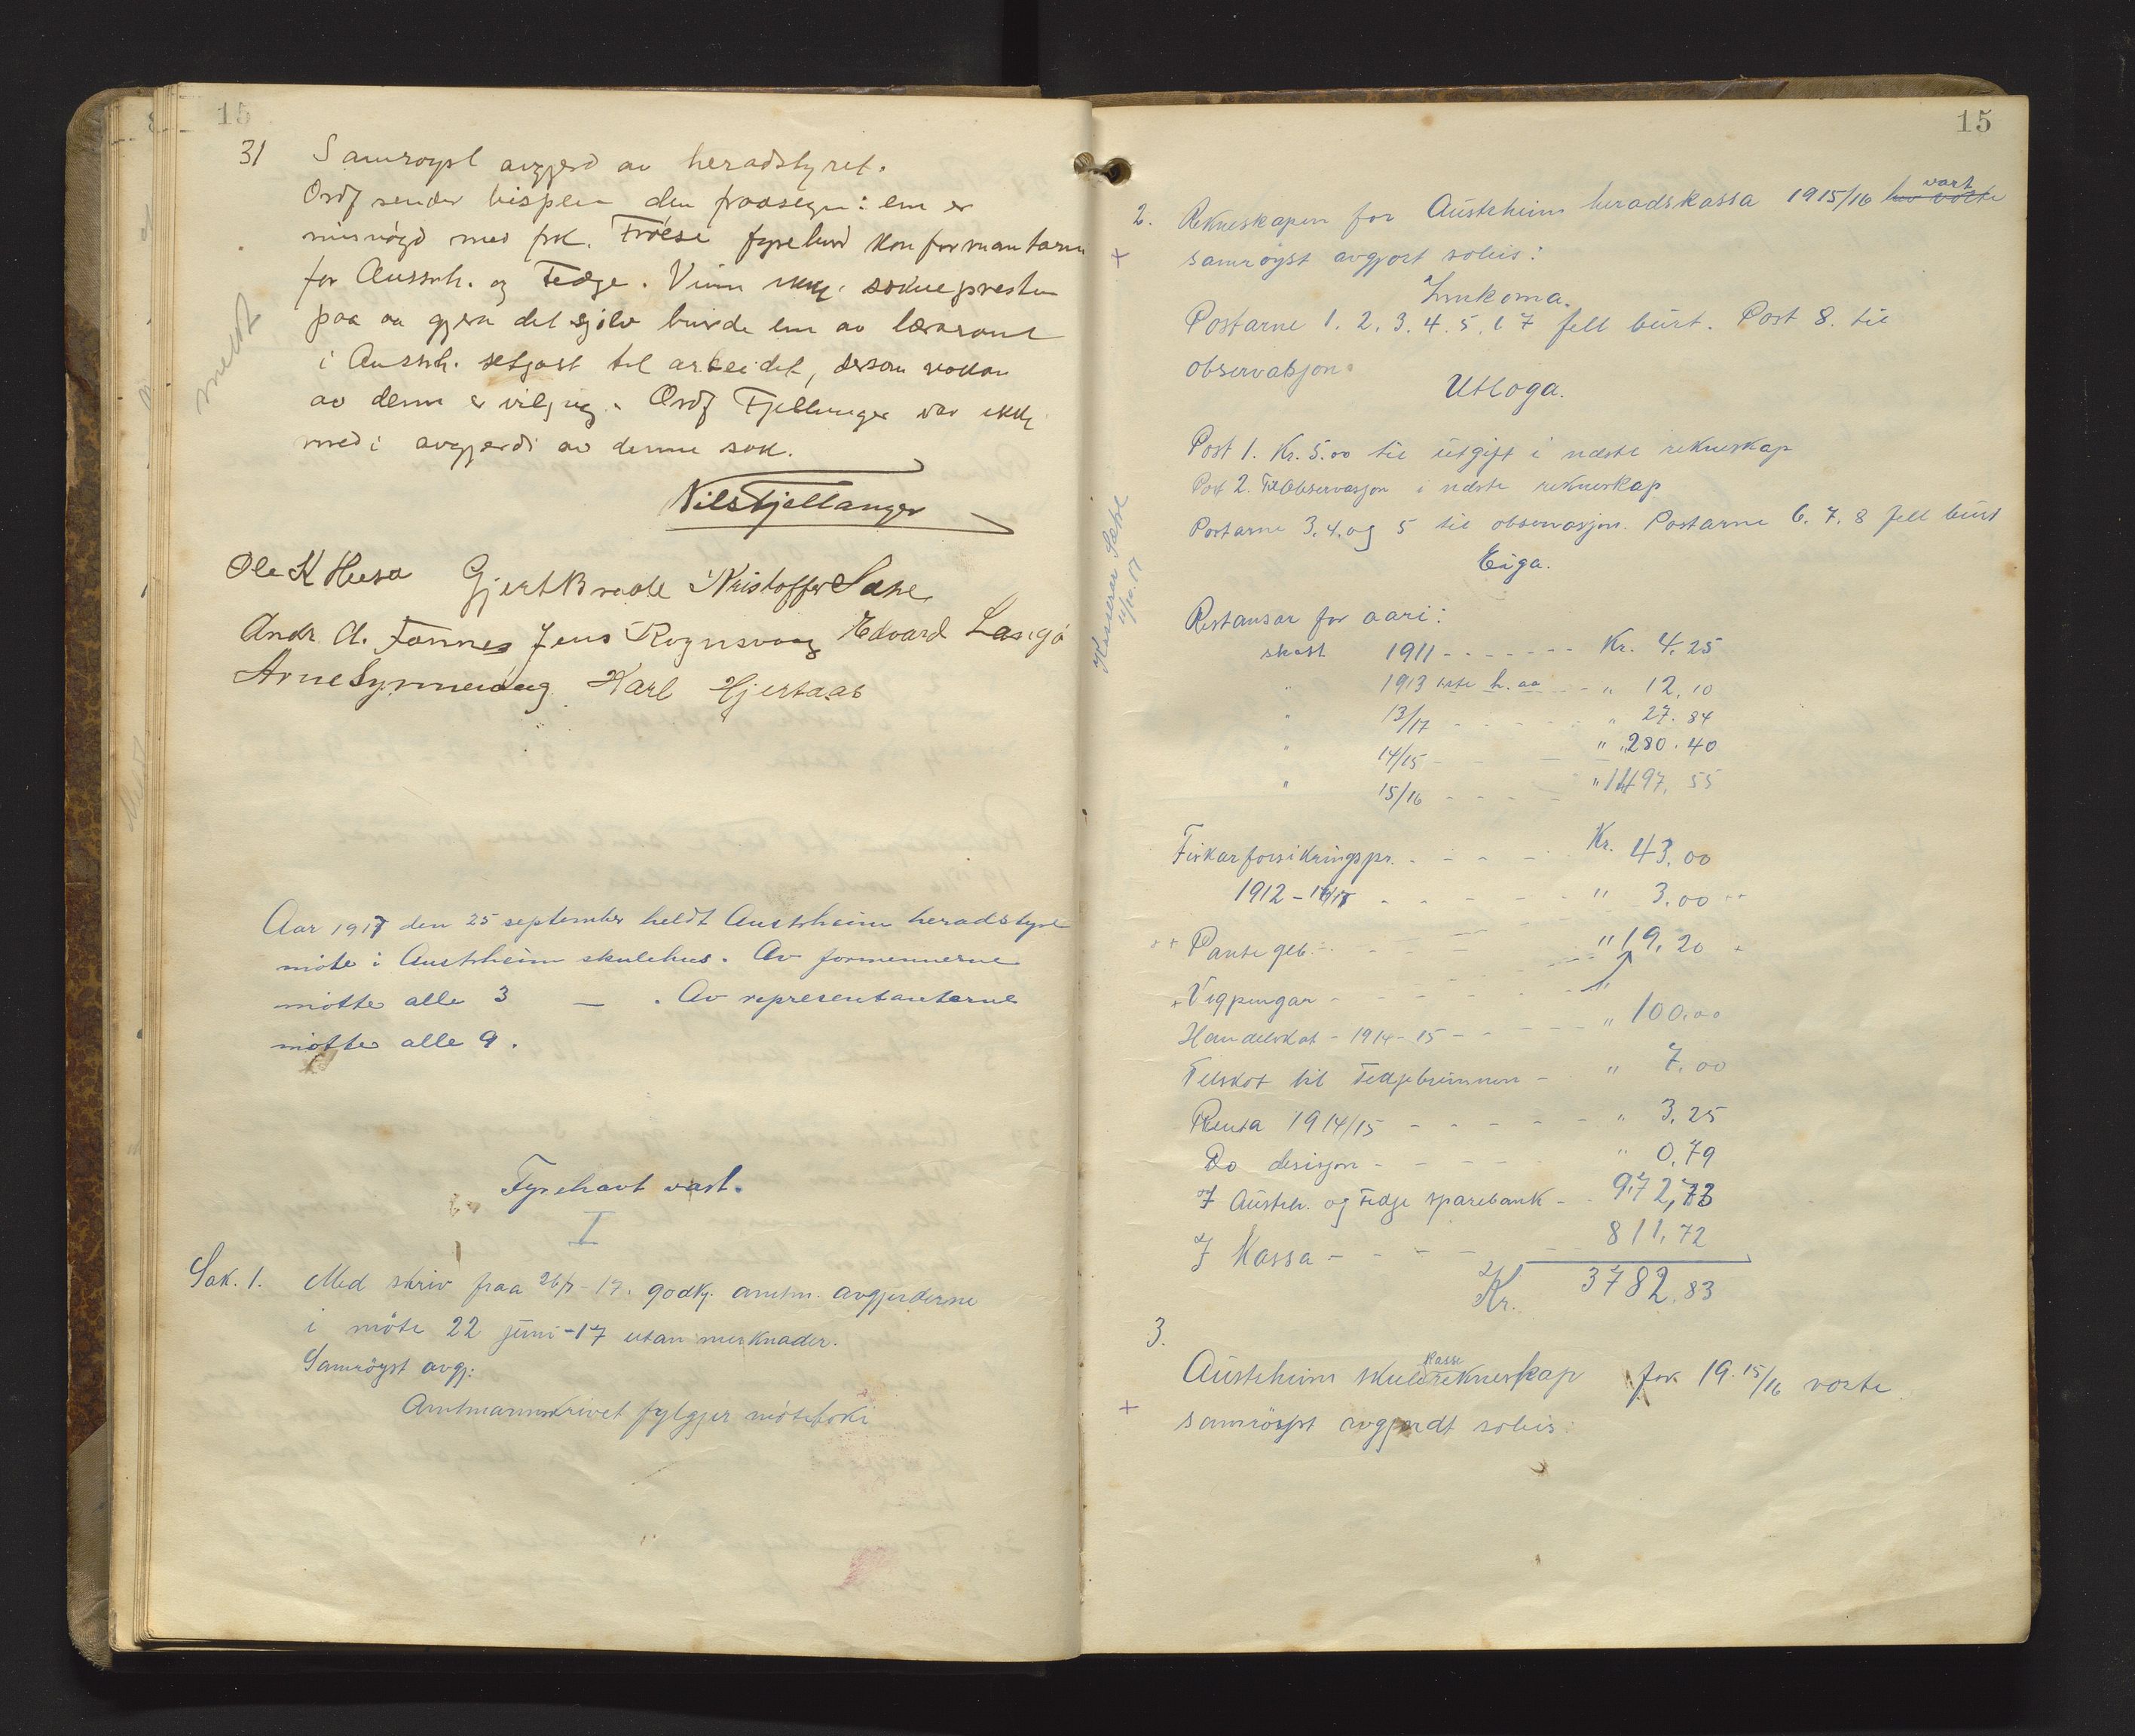 15
31 Samrøyst avgjerd av heradstyret.
Ordf sender bispen den fraasegn: ein er
misnögd med prk. Fröese fyrehurd konformantarne
for Austrh. og Fedge. Vinn ikkje soknepresten
paa aa gjera det sjölv burde ein av lærarane
i Austrh. setjast til arbeidet, dersom nokon
av deim er viljug. Ordf Fjellanger var ikkj
med i avgjerdi av denne sak.
meldt
Nils Fjellanger
Ole K Husa Gjert Braate Kristoffer Sæle
Andr. A. Fonnes Jens Rognsvaag Edvard
Arne Synnevaag Karl Hjertaas
Aar 1917 den 25 september heldt Austrheim heradstyre
möte i Austrheim skulehus. Av formennerne
mötte alle 3 — . Av representantarne
mötte alle 9.
Fyrehavt vart.
I
Sak. 1. Med skriv fraa 26/7-17. godkj. amtm. avgjerderne
i möte 22 juni-17 utan merknader.
Samröyst avgj:
Amtmannskrivet fylgjer möteboki
15
2. Rekneskapen for Austrheim heradskassa 1915/16 vart
samröyst avgjort soleis:
Innkoma.
Postarne 1. 2. 3. 4. 5. 6 7 fell burt. Post 8. til
observasjon.
Utloga.
Post 1. Kr. 5.00 til utgift i næste rekneskap
Post 2. Til Observasjon i næste rekneskap
Postarne 3. 4. og 5 til observasjon. Postarne 6. 7. 8 fell burt
Eiga.
Kasserar Sæle
11/10.17
Restansar for aari:
skatt 1911 - - - - - - - Kr. 4.25
" 1913 h. aa - - " 12,10
" 13/17 - - - - - " 27.84
" 14/15 - - - - " 280.40
" 15/16 - - - - " 1497,55
Fivkarforsikringspr. - - - - Kr. 43,00
1912 - - - - - - " 3.00
Pante geb. - - - " 19,20
Vigpengar - - - - - - "
Handelskat - 1914-15 - - - - - " 100.00
Tilskot til Fedjebrunnen - " 7.00
Renta 1914/15 - - - - - " 3,25
Do desisjon - - - - - " 0,79
I Austrh. og Fedje sparebank - - 972,73
I Kassa - - - - - 811,72
Kr. 3782.83
3.
Austrheim skulekasserekneskap for 19 15/16 vorte
samröyst avgjerdt soleis: